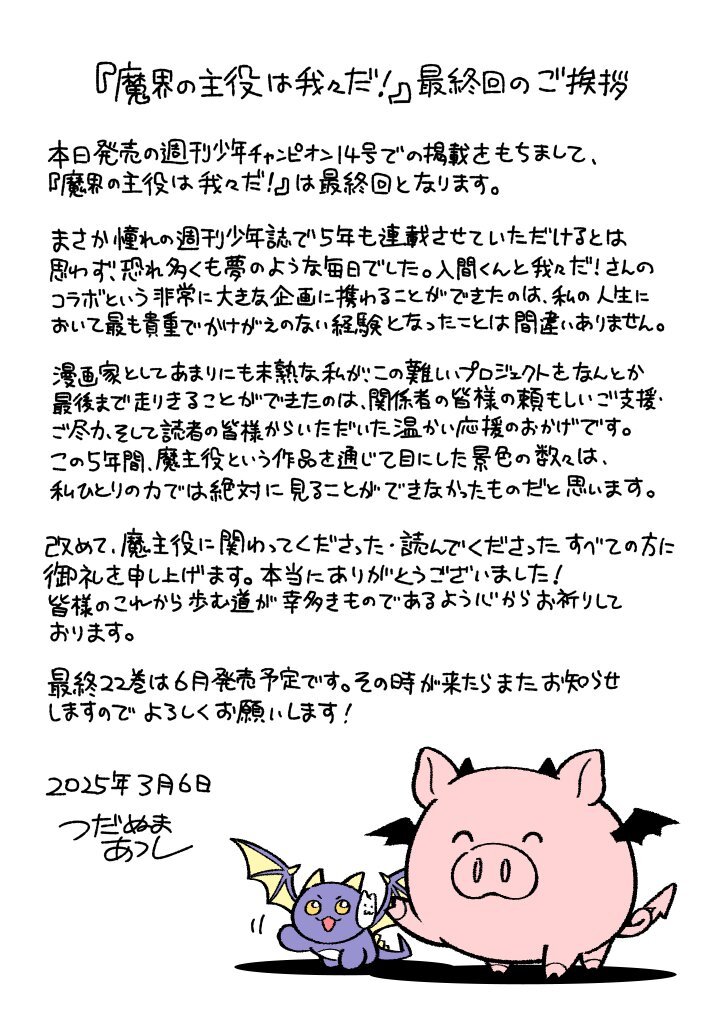 『魔界の主役は我々だ!』最終回のご挨拶
本日発売の週刊少年チャンピオン14号での掲載をもちまして、
『魔界の主役は我々だ!』は最終回となります。
まさか憧れの週刊少年誌で5年も連載させていただけるとは
思わず、恐れ多くも夢のような毎日でした。入間くんと我々だ!さんの
コラボという非常に大きな企画に携わることができたのは、私の人生に
おいて最も貴重でかけがえのない経験となったことは間違いありません。
漫画家としてあまりにも未熟な私が、この難しいプロジェクトをなんとか
最後まで走りきることができたのは、関係者の皆様の頼もしいご支援・
ご尽力、そして読者の皆様からいただいた温かい応援のおかげです。
この5年間、魔主役という作品を通じて目にした景色の数々は、
私ひとりの力では絶対に見ることができなかったものだと思います。
改めて、魔主役に関わってくださった・読んでくださったすべての方に
御礼を申し上げます。本当にありがとうございました!
皆様のこれから歩む道が幸多きものであるよう心からお祈りして
おります。
最終22巻は6月発売予定です。その時が来たらまたお知らせ
しますのでよろしくお願いします!
2025年3月6日
つだぬま
あつし